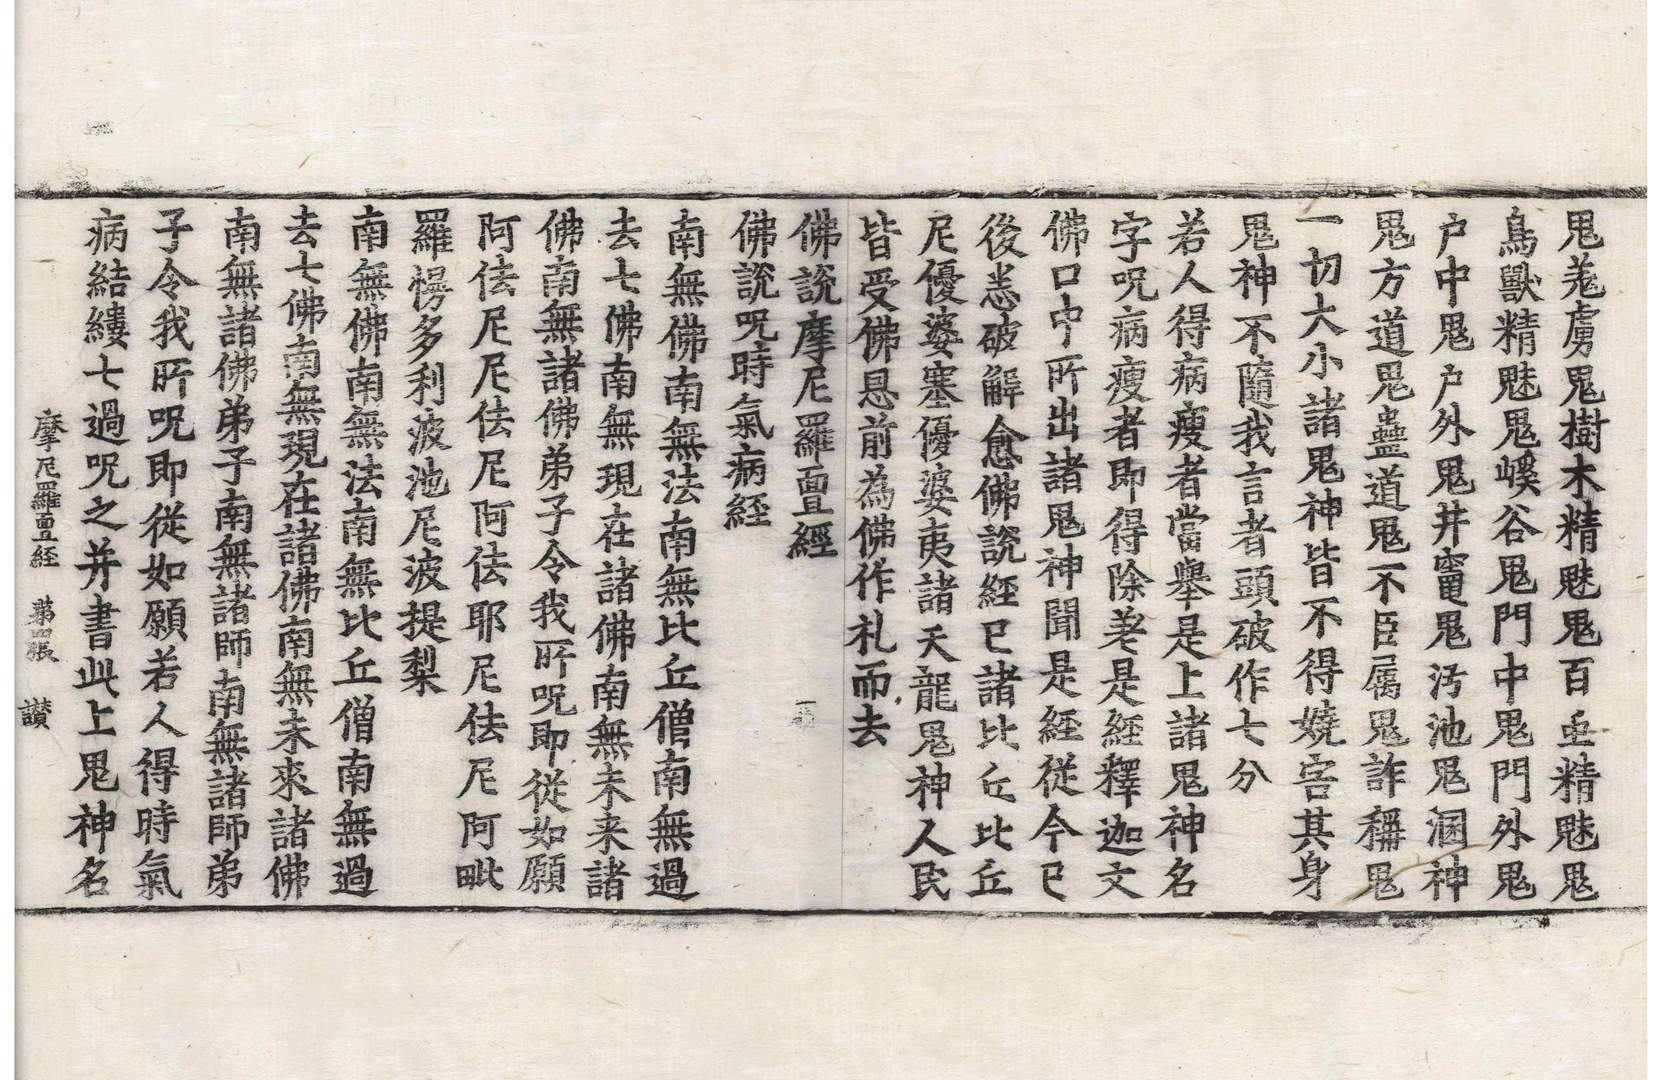 鬼羗虜鬼樹木精魅鬼百虫精魅鬼
鳥獸精魅鬼嵠谷鬼門中鬼門外鬼
户中鬼户外鬼井竈鬼汚池鬼溷神
鬼方道鬼蠱道鬼不臣属鬼詐稱鬼
一切大小諸鬼神皆不得嬈害其身
鬼神不隨我言者頭破作七分
若人得病瘦者當舉是上諸鬼神名
字呪病瘦者即得除差是經釋迦文
佛口中所出諸鬼神聞是經從今已
後恙破解愈佛說經已諸比丘比丘
尼優婆塞優婆夷諸天龍鬼神人民
皆受佛恩前為佛作礼而去
佛說摩尼羅亶經
佛說呪時氣病經
南無佛南無法南無比丘僧南無過
去七佛南無現在諸佛南無未来諸
佛南無諸佛弟子令我所呪即從如願
阿佉尼尼佉尼阿佉耶尼佉尼阿毗
羅慢多利波池尼波提梨
南無佛南無法南無比丘僧南無過
去七佛南無現在諸佛南無未來諸佛
南無諸佛弟子南無諸師南無諸師弟
子令我所呪即從如願若人得時氣
病結縷七過呪之并書此上鬼神名
摩尼羅亶経 苐四張 讃